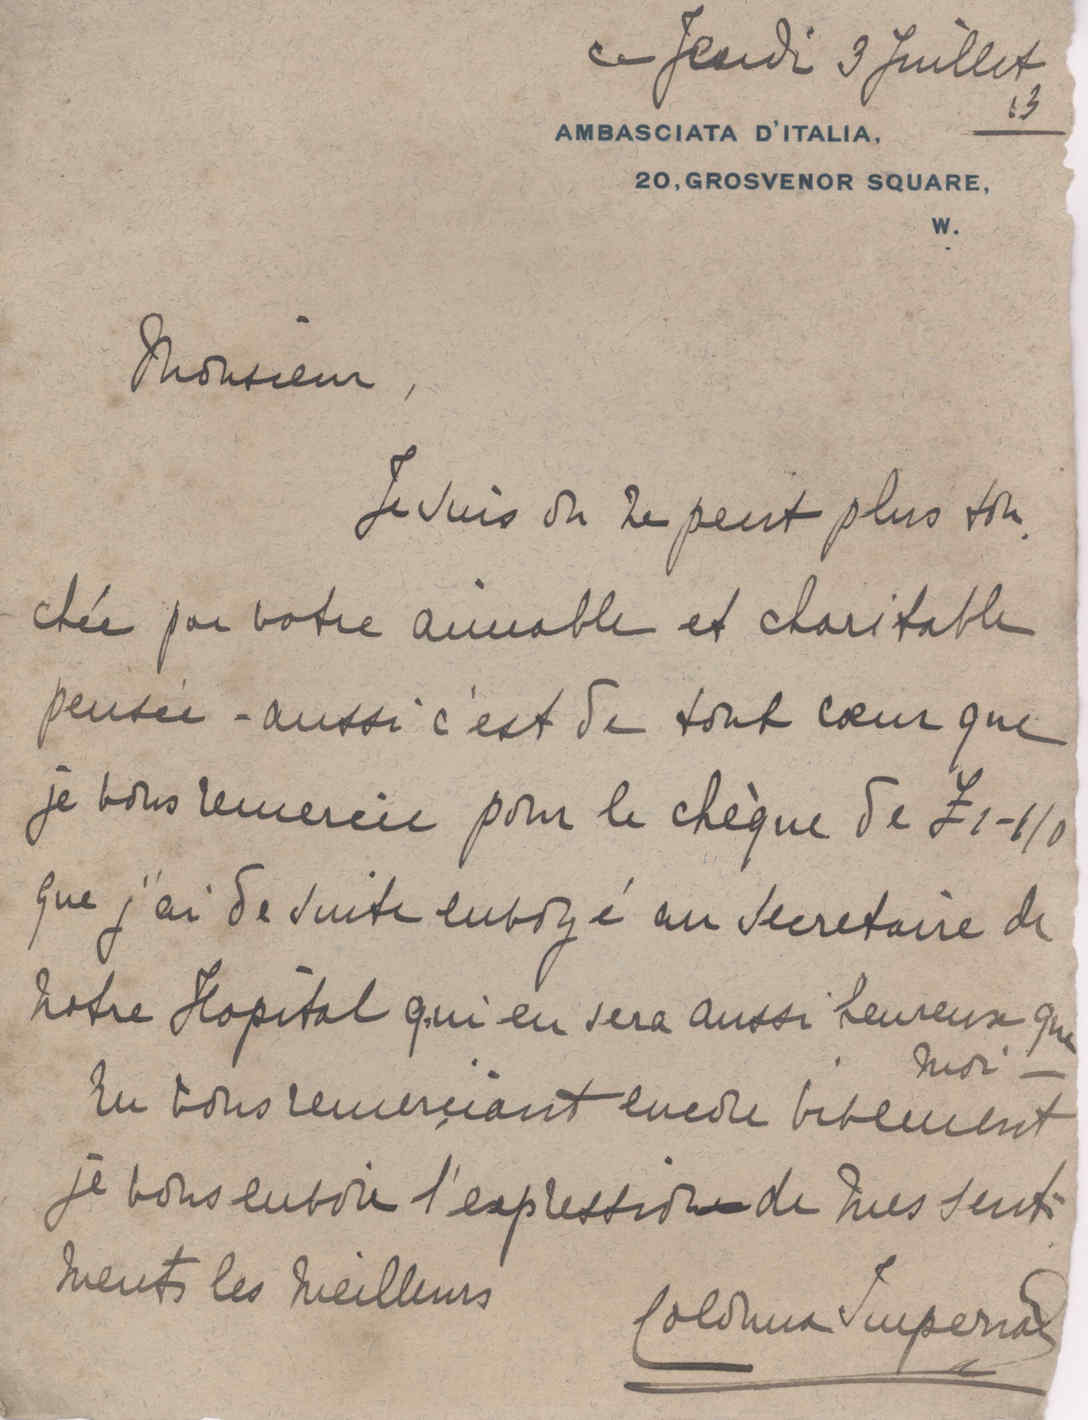 ce Jeudi 3 Juillet
13
AMBASCIATA D'ITALIA,
20, GROSVENOR SQUARE,
W.
Monsieur,
Je suis on ne peut plus tou-
chée par votre aimable et charitable
pensée - aussi c'est de tout cœur que
je vous remercie pour le chèque de £1-1/0
que j'ai de suite envoyé au Secretaire de
notre Hopital qui en sera aussi heureux que
moi -
En vous remerçiant encore vivement
je vous envoie l'expression de mes senti-
ments les meilleurs
Colonna Imperiali